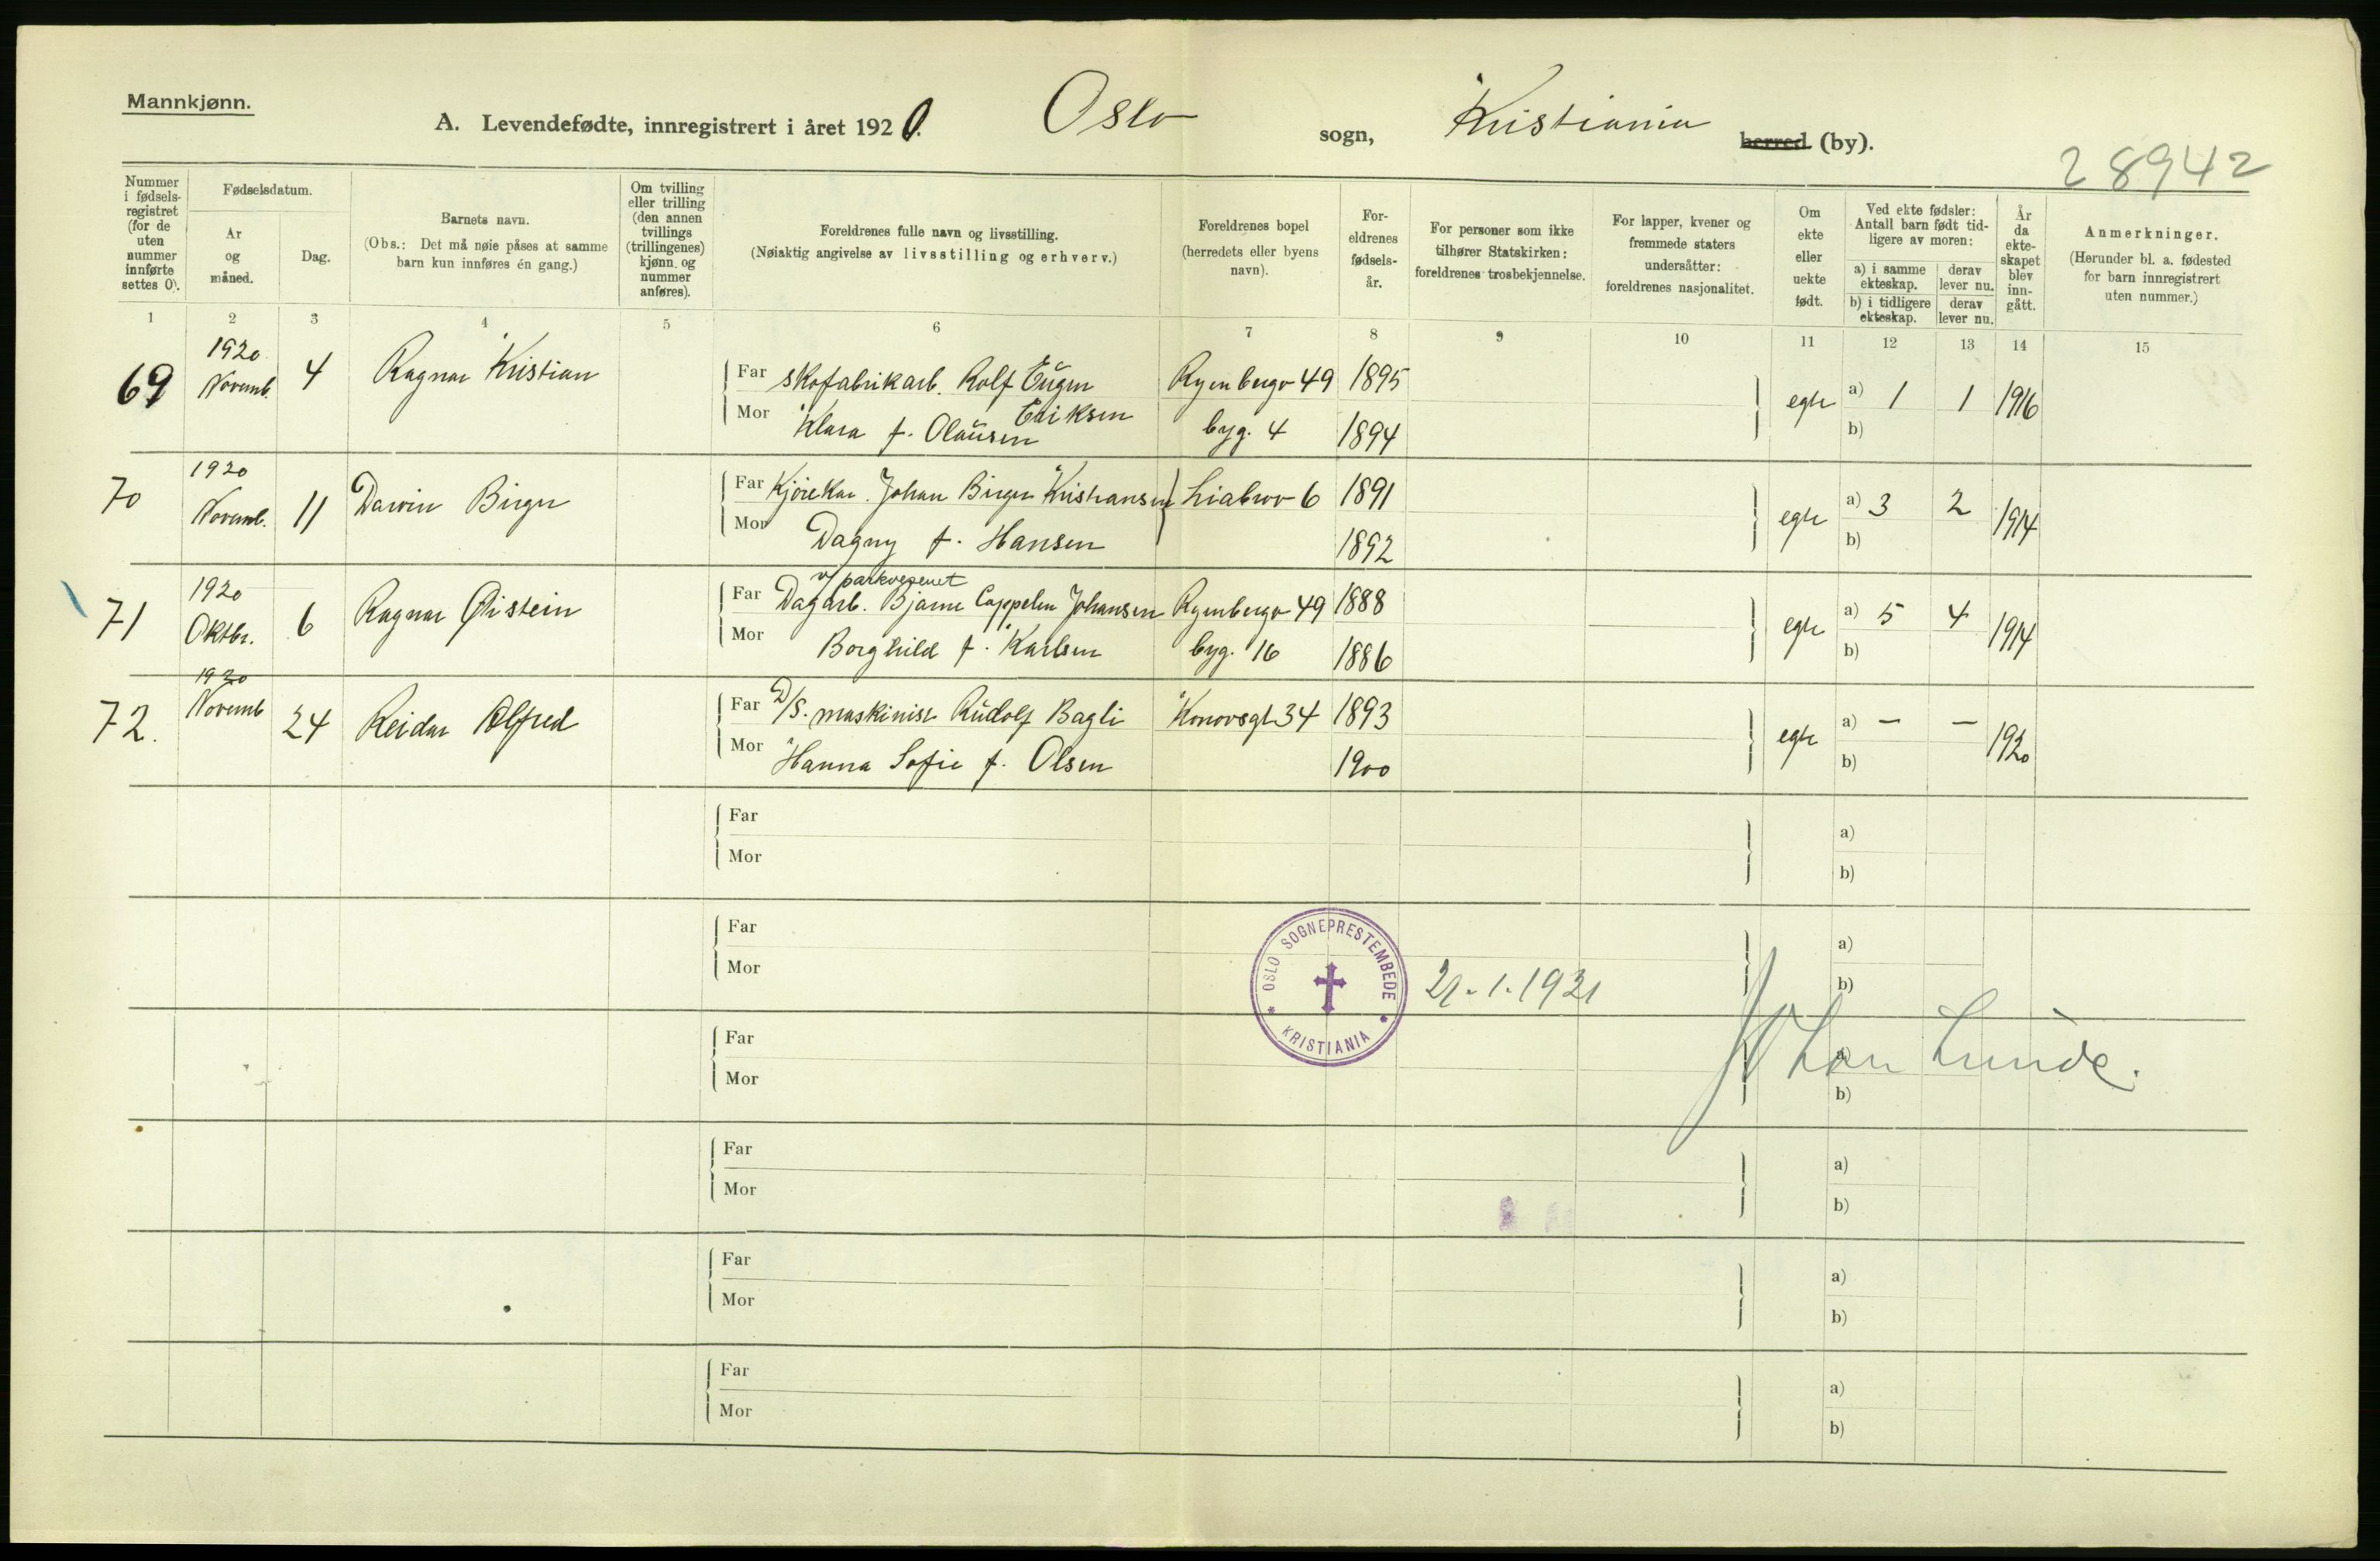 Mannkjønn.
A. Levendefødte, innregistrert i året 1920. Oslo sogn, Kristiania herred (by).
28942
Nummer i fødselsregistret (for de uten nummer innførte settes 0).
Fødselsdatum.
År og måned.
Dag.
Barnets navn.
(Obs.: Det må nøie påses at samme barn kun innføres én gang.)
Om tvilling eller trilling (den annen tvillings (trillingenes) kjønn og nummer anføres).
Foreldrenes fulle navn og livsstilling.
(Nøiaktig angivelse av livsstilling og erhverv.)
Foreldrenes bopel (herredets eller byens navn).
Foreldrenes fødselsår.
For personer som ikke tilhører Statskirken: foreldrenes trosbekjennelse.
For lapper, kvener og fremmede staters undersåtter: foreldrenes nasjonalitet.
Om ekte eller uekte født.
Ved ekte fødsler: Antall barn født tidligere av moren:
a) i samme ekteskap. derav lever nu.
b) i tidligere ekteskap. derav lever nu.
År da ekteskapet blev inngått.
Anmerkninger.
(Herunder bl. a. fødested for barn innregistrert uten nummer.)
1 2 3 4 5 6 7 8 9 10 11 12 13 14 15
1920
69 Novemb. 4 Ragnar Kristian Far Skofabrikarb. Rolf Eugen Ryenbergv 49 1895 egte a) 1 1 1916
Eriksen
Mor Klara f. Olaüsen byg. 4 1894 b)
1920
70 Novemb. 11 Darwin Birger Far Kjørekar. Johan Birger Kristiansen Liabrov 6 1891 egte a) 3 2 1914
Mor Dagny f. Hansen 1892 b)
1920
v/ parkvesenet
71 Oktbr. 6 Ragnar Øistein Far Dagarb. Bjarne Cappelen Johansen Ryenbergv 49 1888 egte a) 5 4 1914
Mor Borghild f. Karlsen byg. 16 1886 b)
1920
72. Novemb 24 Reidar Alfred Far D/S. maskinist Rudolf Bagli Konowsgt 34 1893 egte a) — — 1920
Mor Hanna Sofie f. Olsen 1900 b)
Far a)
Mor b)
Far a)
Mor b)
OSLO SOGNEPRESTEMBEDE
* KRISTIANIA *
21-1-1921
Johan Lunde.
Far a)
Mor b)
Far a)
Mor b)
Far a)
Mor b)
Far a)
Mor b)